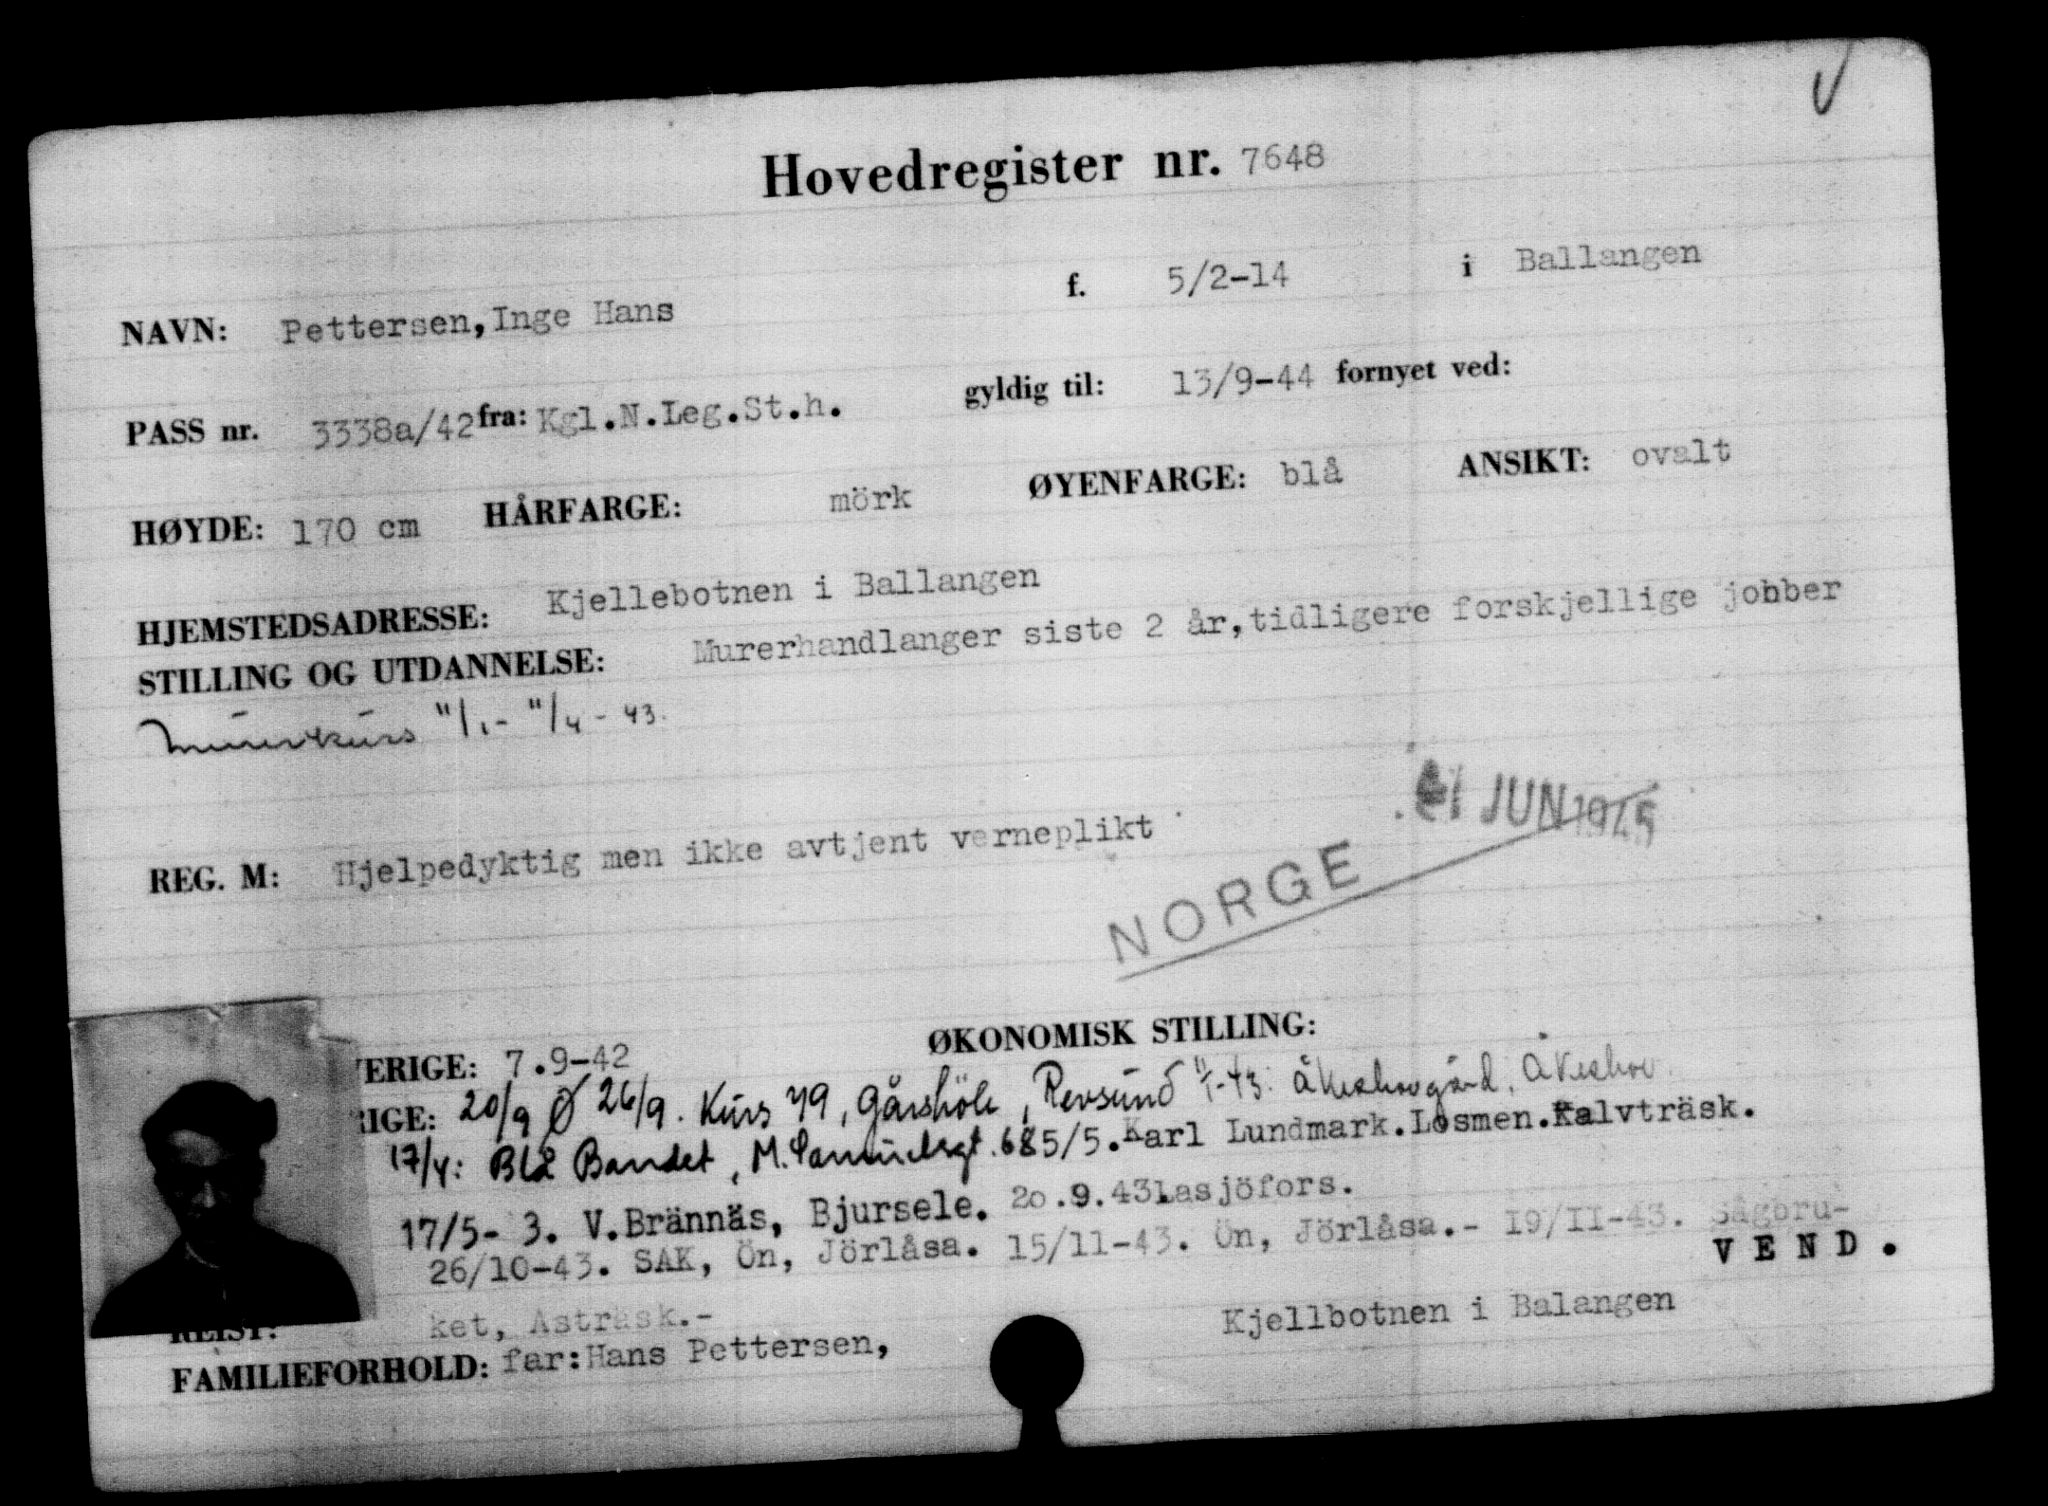 Hovedregister nr. 7648
NAVN: Pettersen, Inge Hans f. 5/2-14 i Ballangen
PASS nr. 3338a/42 fra: Kgl.N.Leg.St.h. gyldig til: 13/9-44 fornyet ved:
HØYDE: 170 cm HÅRFARGE: mörk ØYENFARGE: blå ANSIKT: ovalt
HJEMSTEDSADRESSE: Kjellebotnen i Ballangen
STILLING OG UTDANNELSE: Murerhandlanger siste 2 år, tidligere forskjellige jobber
Murerkurs 11/1- 11/4 - 43.
JUN 1945
REG. M: Hjelpedyktig men ikke avtjent verneplikt
NORGE
ØKONOMISK STILLING:
VERIGE: 7.9-42
RIGE: 20/9 Ø 26/9. Kurs 49, Gårshöle, Revsund 11/1-43: Åkeshovgård, Åkeshov.
17/4: Blå Bandet, M. Samuelsgt. 68 5/5. Karl Lundmark. Losmen. Kalvträsk.
17/5- 3. V.Brännäs, Bjursele. 20.9.43 Lasjöfors.
26/10-43. SAK, Ön, Jörlåsa. 15/11-43. Ön, Jörlåsa.- 19/II-43. Sågbru-
VEND.
ket, Asträsk.-
REIST:
Kjellbotnen i Balangen
FAMILIEFORHOLD: far: Hans Pettersen,